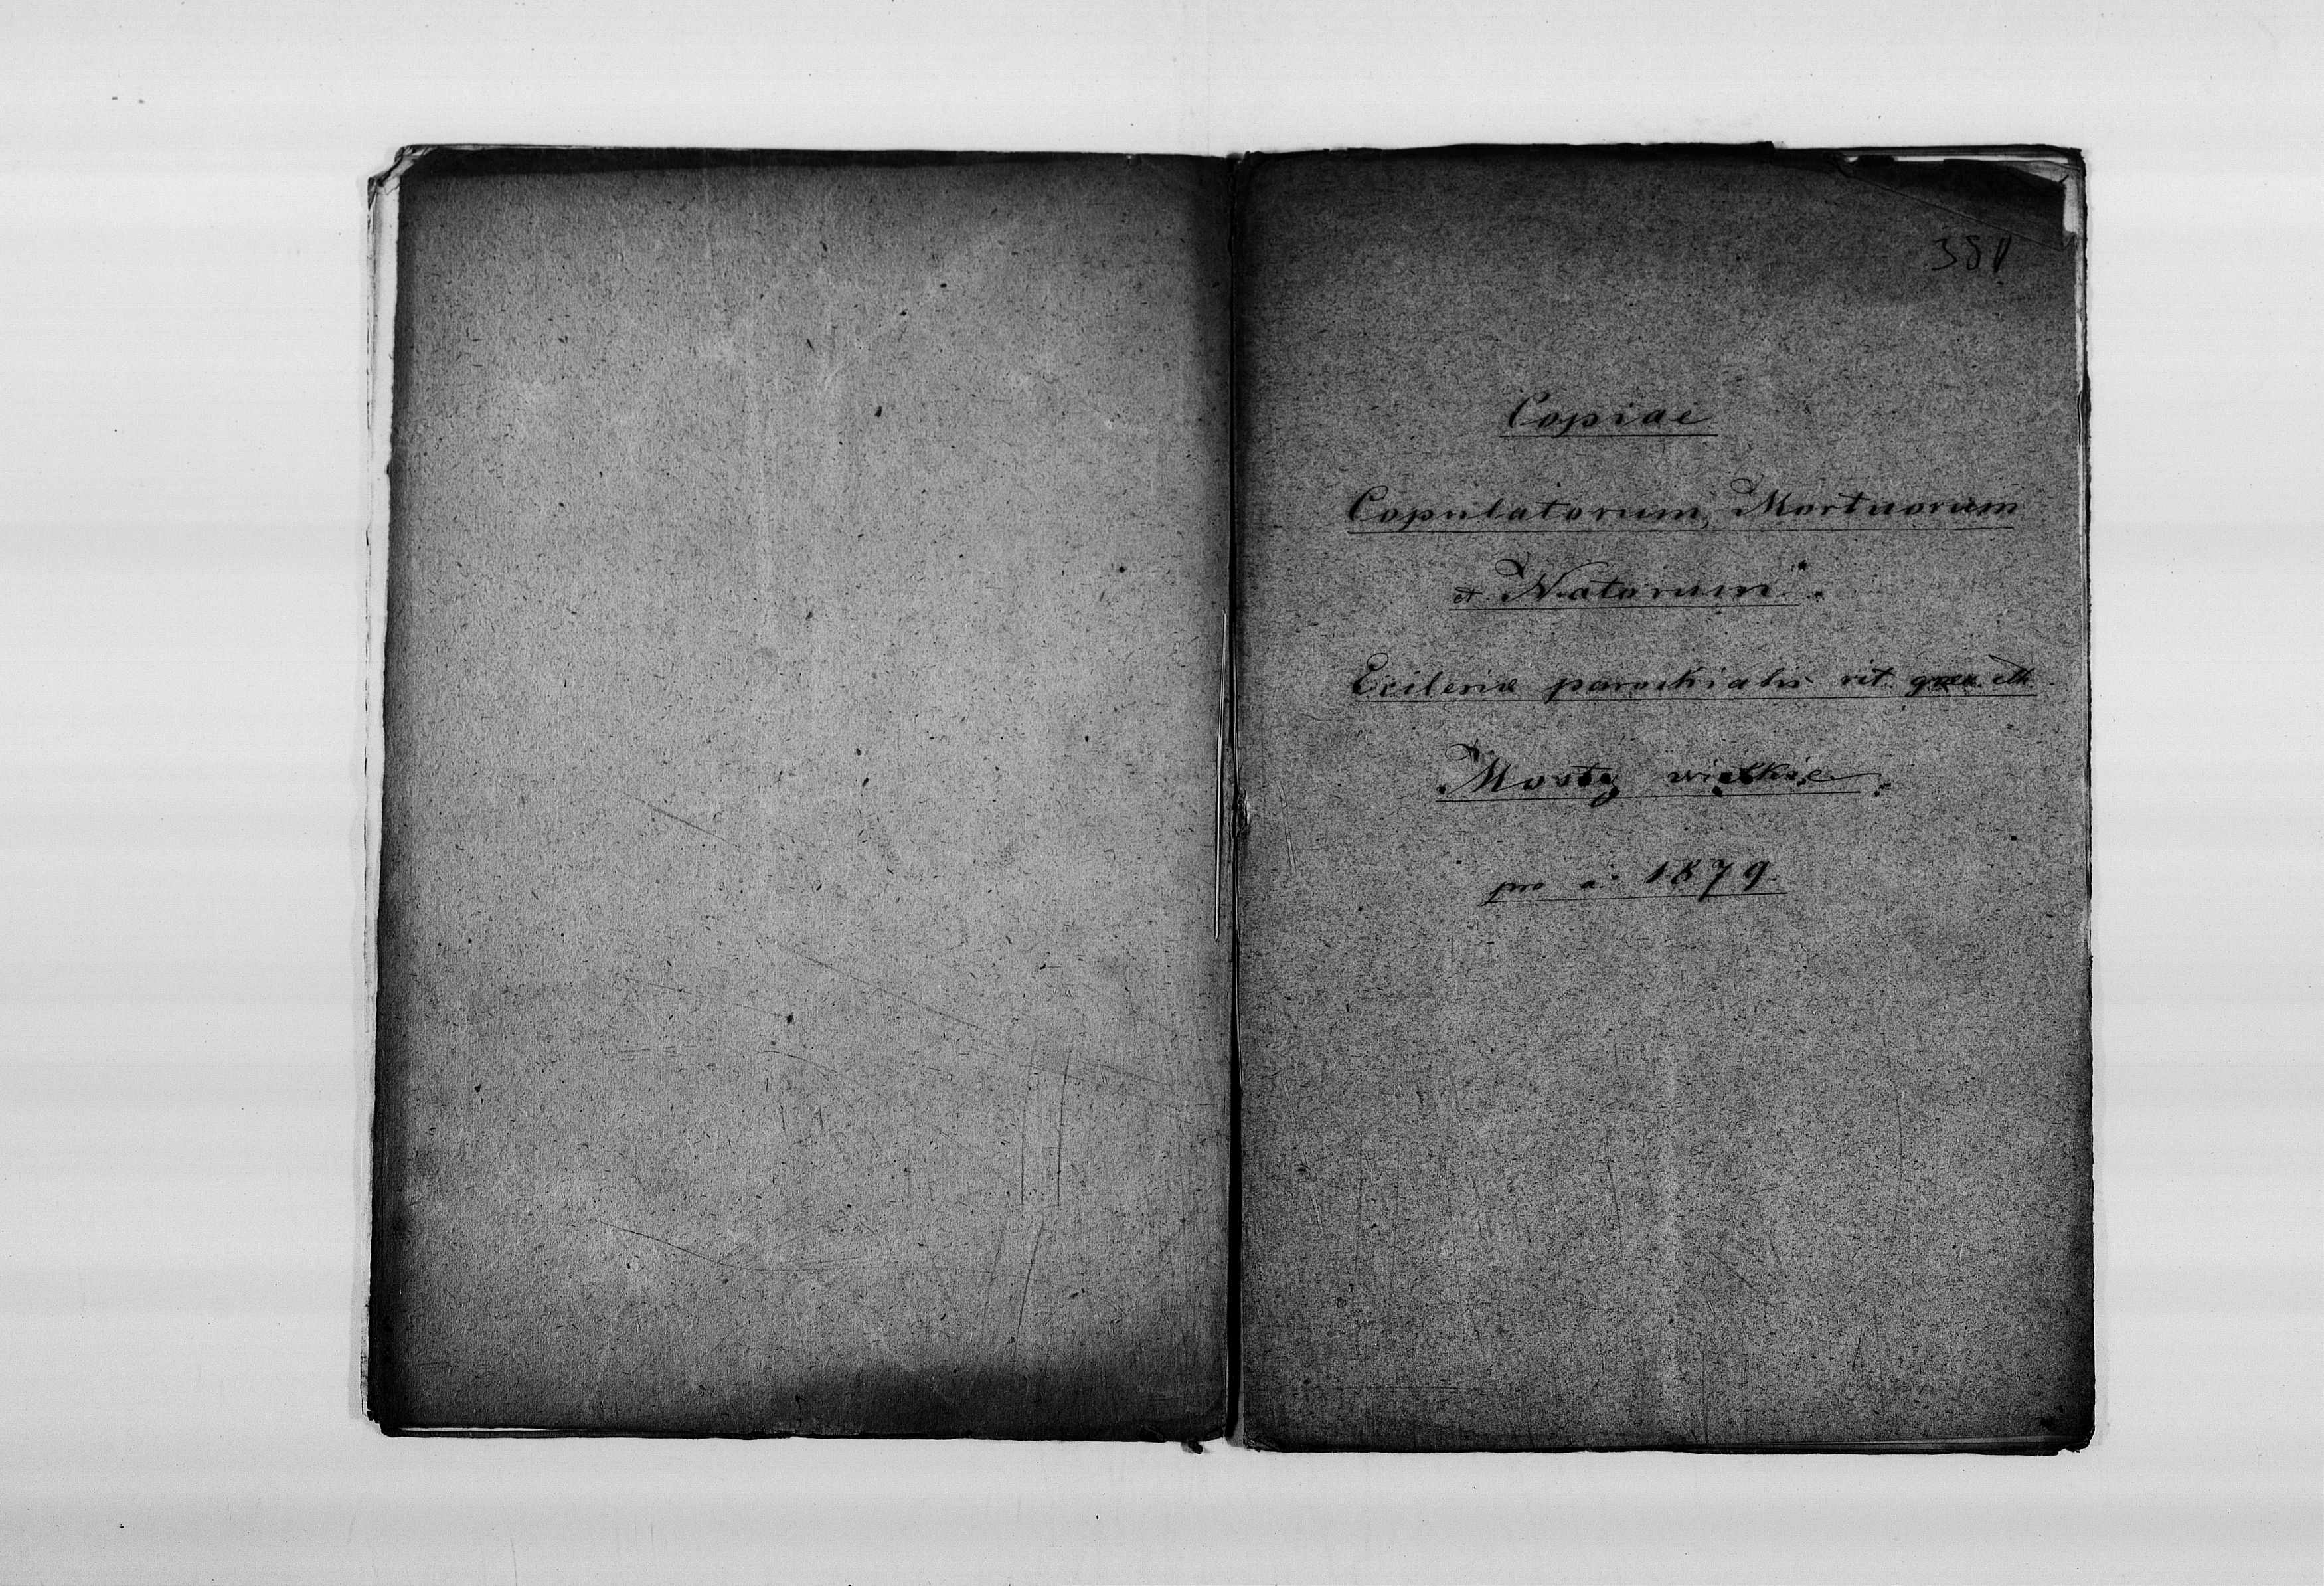 Copiae
Copulatorum, Mortuorum
et Natorum.
Ecclesiæ parochialis rit. graec. cth.
Mosty wielkie.
pro a: 1879.